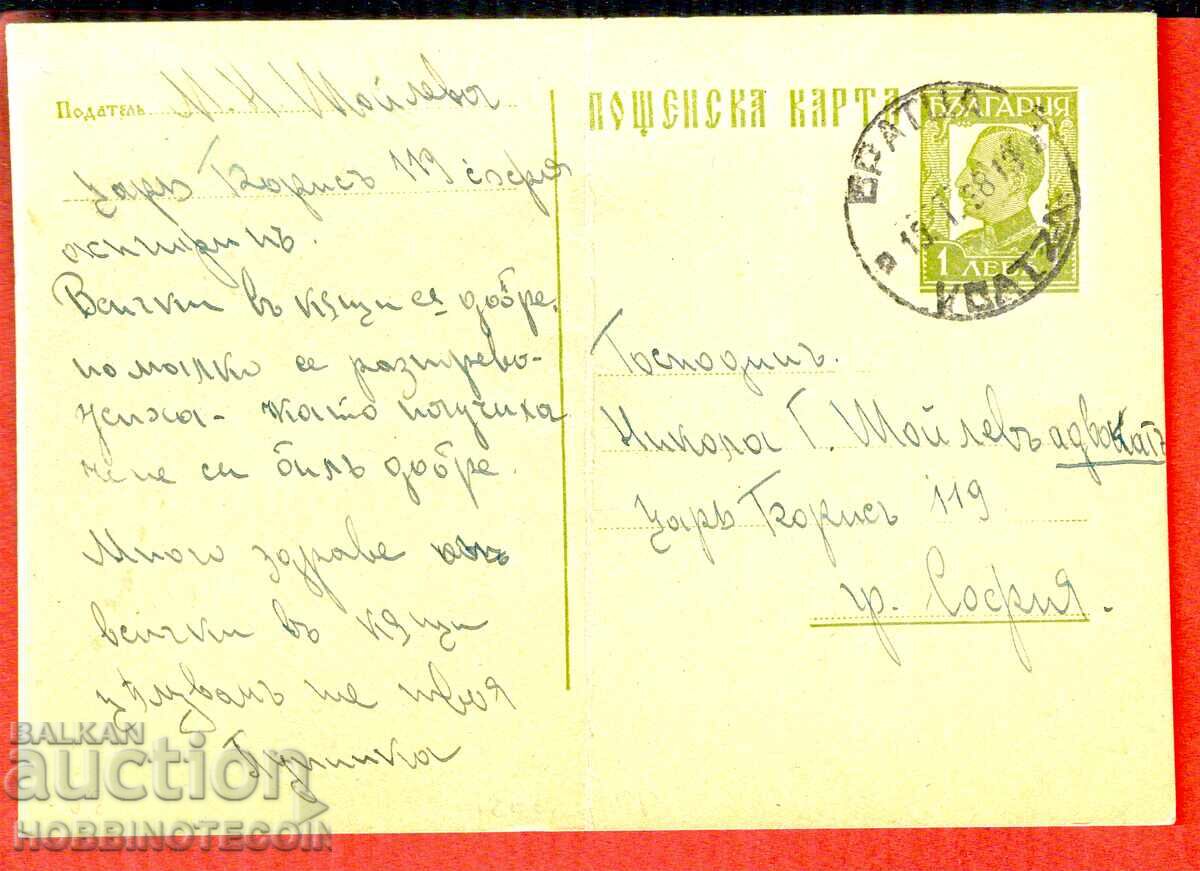 Податель М. Н. Шойлева
Царь Борисъ 119 София
Всички въ кѫщи са добре,
по малко се разтрево-
жиха - като получиха
че не си билъ добре.
Много здраве отъ
всички въ кѫщи
цѣлувамъ те твоя
ПОЩЕНСКА КАРТА
БЪЛГАРИЯ
1 ЛЕВЪ
ВРАТЦА
VRATZA
Господинъ
Никола Г. Шойлевъ адвокатъ
Царь Борисъ 119
гр. София.
BALKAN
auction
HOBBINOTECOIN